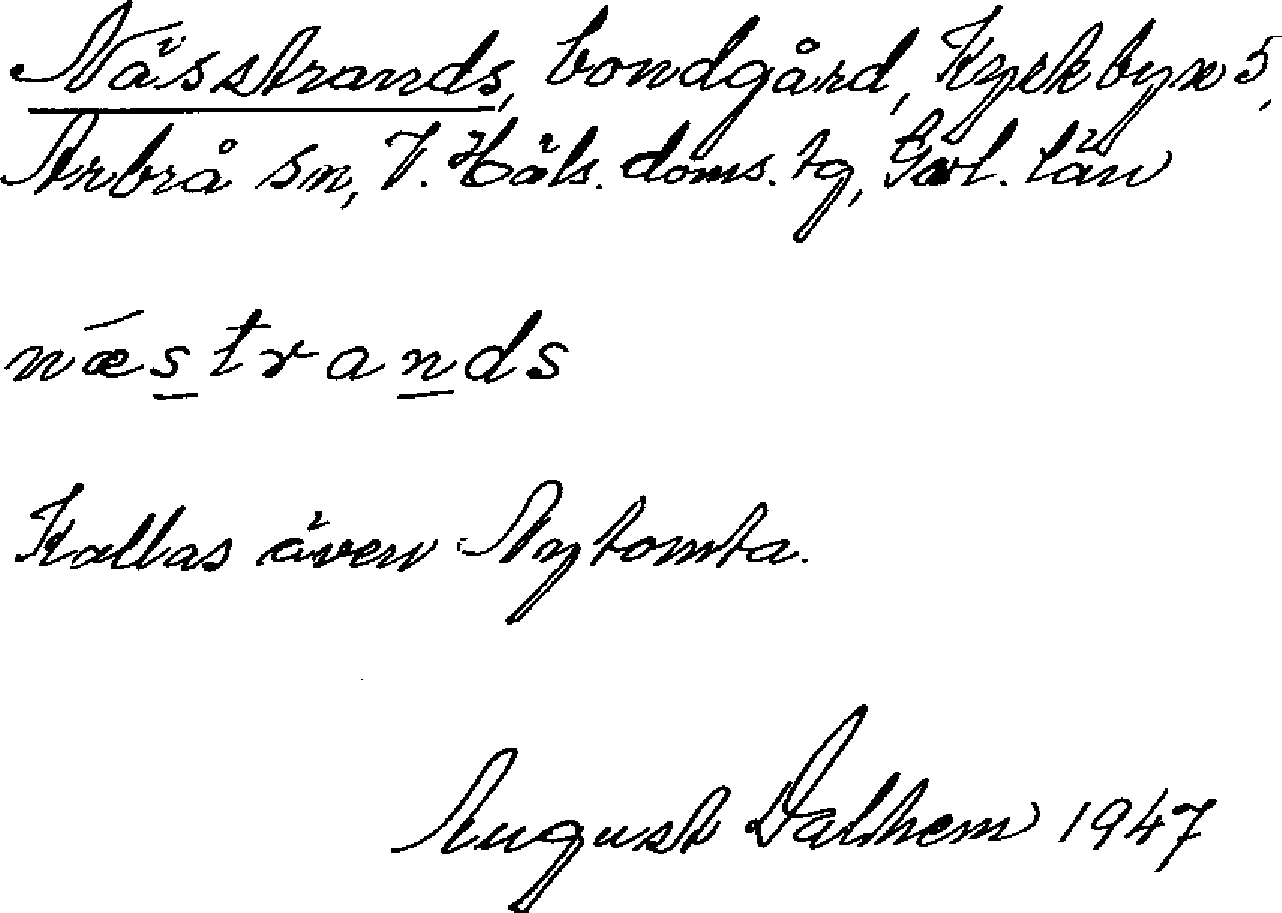 Nässtrands, bondgård, Kyrkbyn 5,
Arbrå sn, V. Häls. doms. tg, Gävl. län
næstrands
Kallas även Nytomta.
August Dalhem 1947